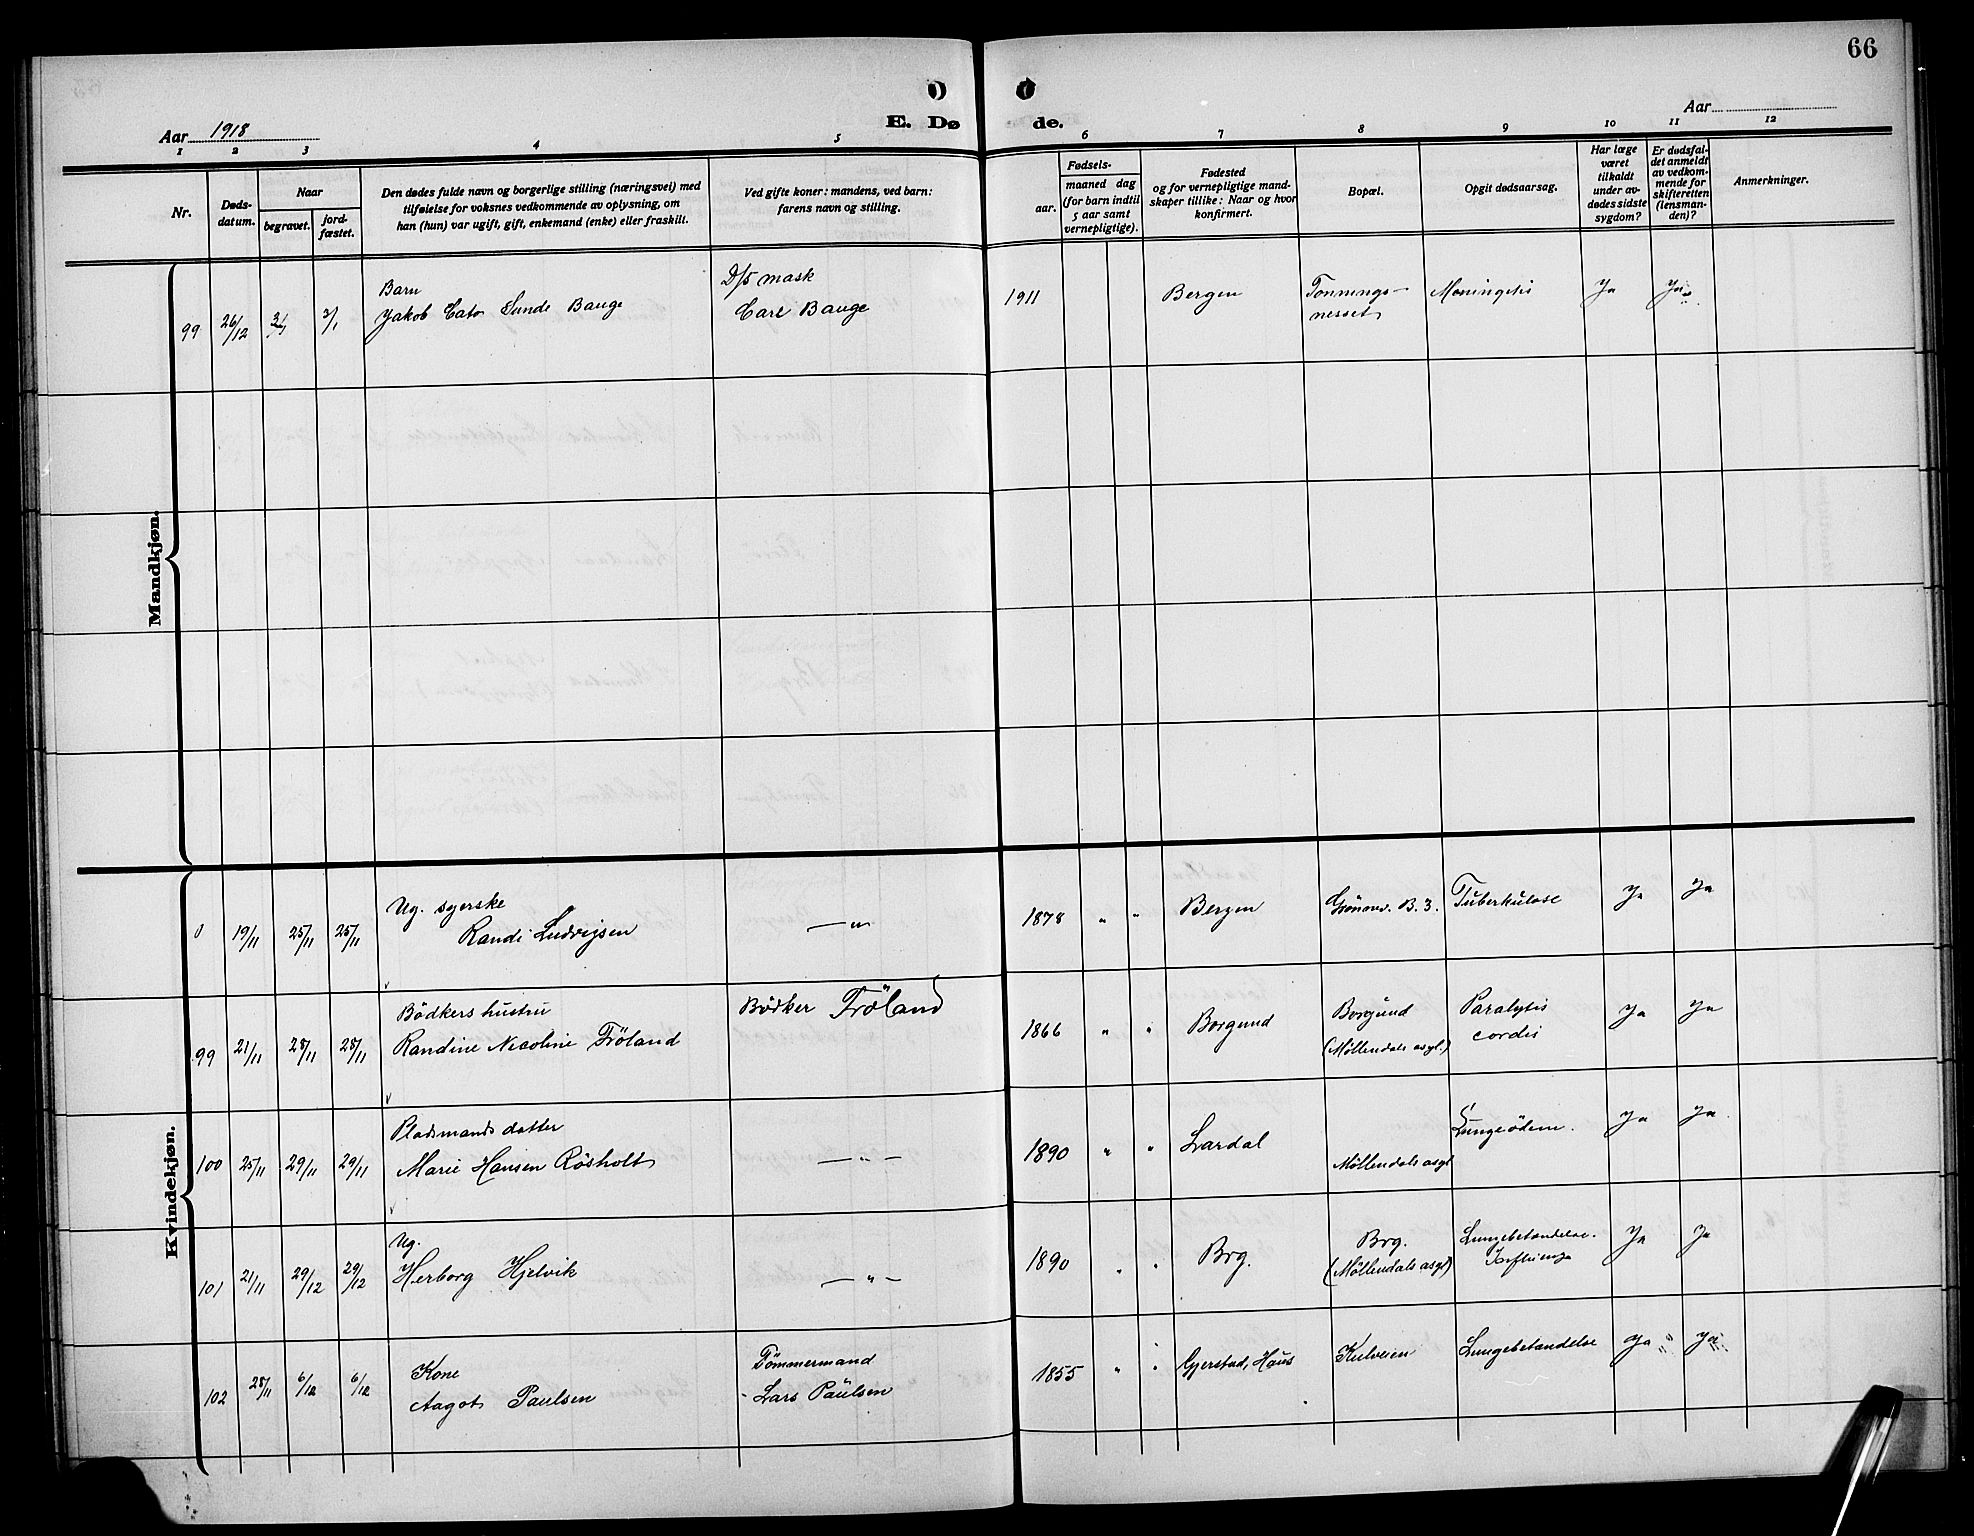 66
Aar 1918
E. Dø de.
Aar
1 2 3 4 5 6 7 8 9 10 11 12
Nr.
Døds-
datum.
Naar
begravet.
jord-
fæstet.
Den dødes fulde navn og borgerlige stilling (næringsvei) med
tilføielse for voksnes vedkommende av oplysning, om
han (hun) var ugift, gift, enkemand (enke) eller fraskilt.
Ved gifte koner: mandens, ved barn:
farens navn og stilling.
Fødsels-
aar.
maaned dag
(for barn indtil
5 aar samt
vernepligtige).
Fødested
og for vernepligtige mand-
skaper tillike: Naar og hvor
konfirmert.
Bopæl.
Opgit dødsaarsag.
Har læge
været
tilkaldt
under av-
dødes sidste
sygdom?
Er dødsfal-
det anmeldt
av vedkom-
mende for
skifteretten
(lensman-
den)?
Anmerkninger.
Mandkjøn.
Barn D/S mask
99 26/12 3/1 Jakob Cato Sunde Bauge Carl Bauge 1911 Bergen Tonnings- Meningitis Ja Ja
nesset
Kvindekjøn.
Ug. syerske
19/11 25/11 25/11 Randi Ludvigsen —„— 1878 „ „ Bergen B. 3. Tuberkulose Ja Ja
Bödkers hustru Bödker Tröland
99 21/11 28/11 28/11 Randine Nicoline Tröland 1866 „ „ Borgund Borgund Paralysis Ja Ja
(Möllendals asyl.) cordis
Pladsmands datter
100 25/11 29/11 29/11 Marie Hansen Rösholt —„— 1890 „ „ Lardal Möllendals asyl Lungeödem. Ja Ja
Ug.
101 21/11 29/12 29/12 Herborg Hjelvik —„— 1890 „ „ Brg. Brg. Lungebetændelse. Ja Ja
(Möllendals asyl) Influenza
Kone Tömmermand
102 28/11 6/12 6/12 Aagot Paulsen Lars Paulsen 1855 „ „ Gjerstad, Haus Kulveien Lungebetændelse Ja Ja